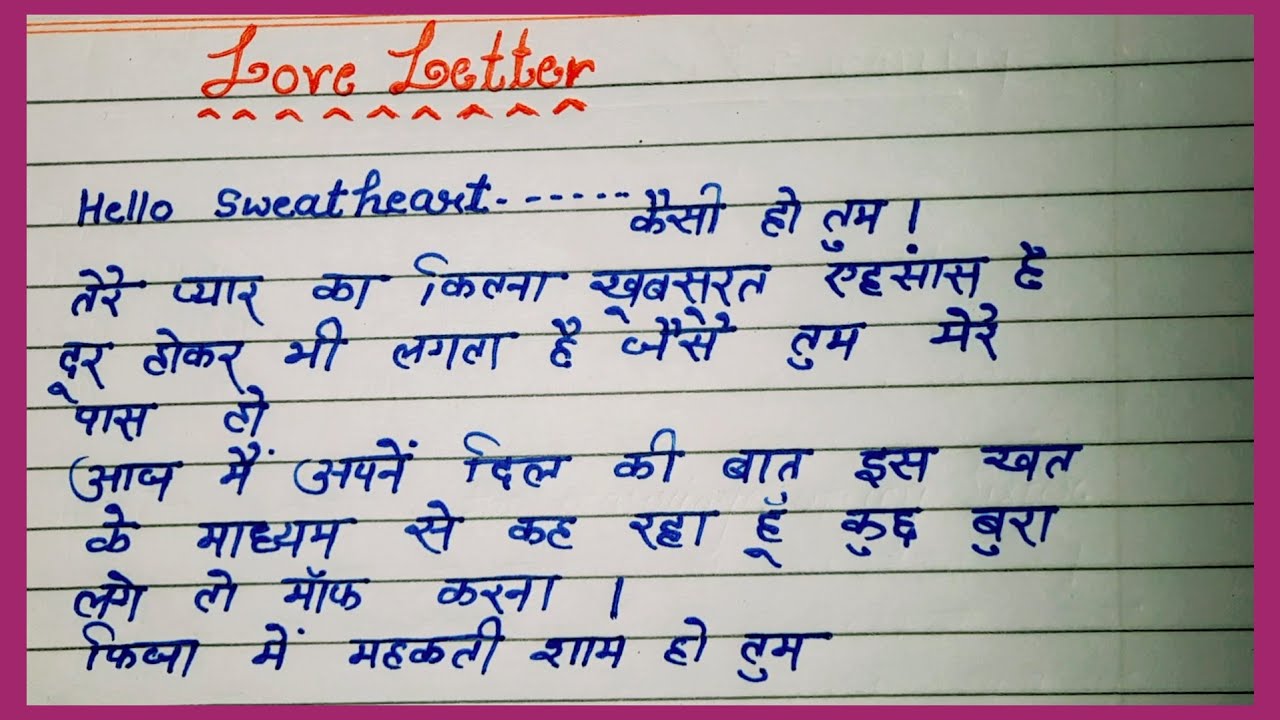 Love Letter
Hello sweatheart------ कैसी हो तुम ।
तेरे प्यार का कितना खूबसूरत एहसांस है
दूर होकर भी लगता है जैसे तुम मेरे
पास हो
आज मैं अपनें दिल की बात इस खत
के माध्यम से कह रहा हूँ कुछ बुरा
लगे तो मॉफ करना ।
फिजा में महकती शाम हो तुम